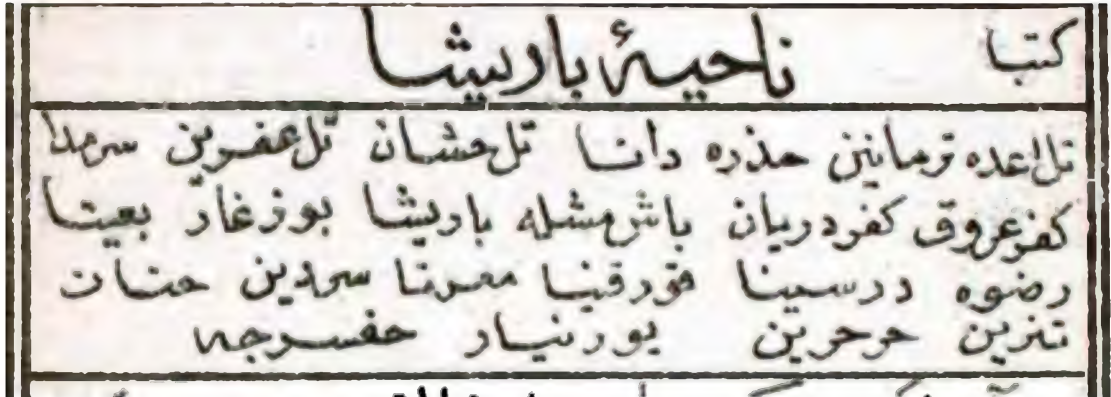 كتبا
ناحيهٔ باريشا
تل‌اعده ترمانين حذره دانا تل‌حشان تل‌عفرين سرمدا
كفرعروق كفردريان باش‌مشله باريشا بوزغار بعيتا
رضوه درسيتا قورقنيا معرتا سردين حتات
تنرين حرحرين بورنيار حفسرجه